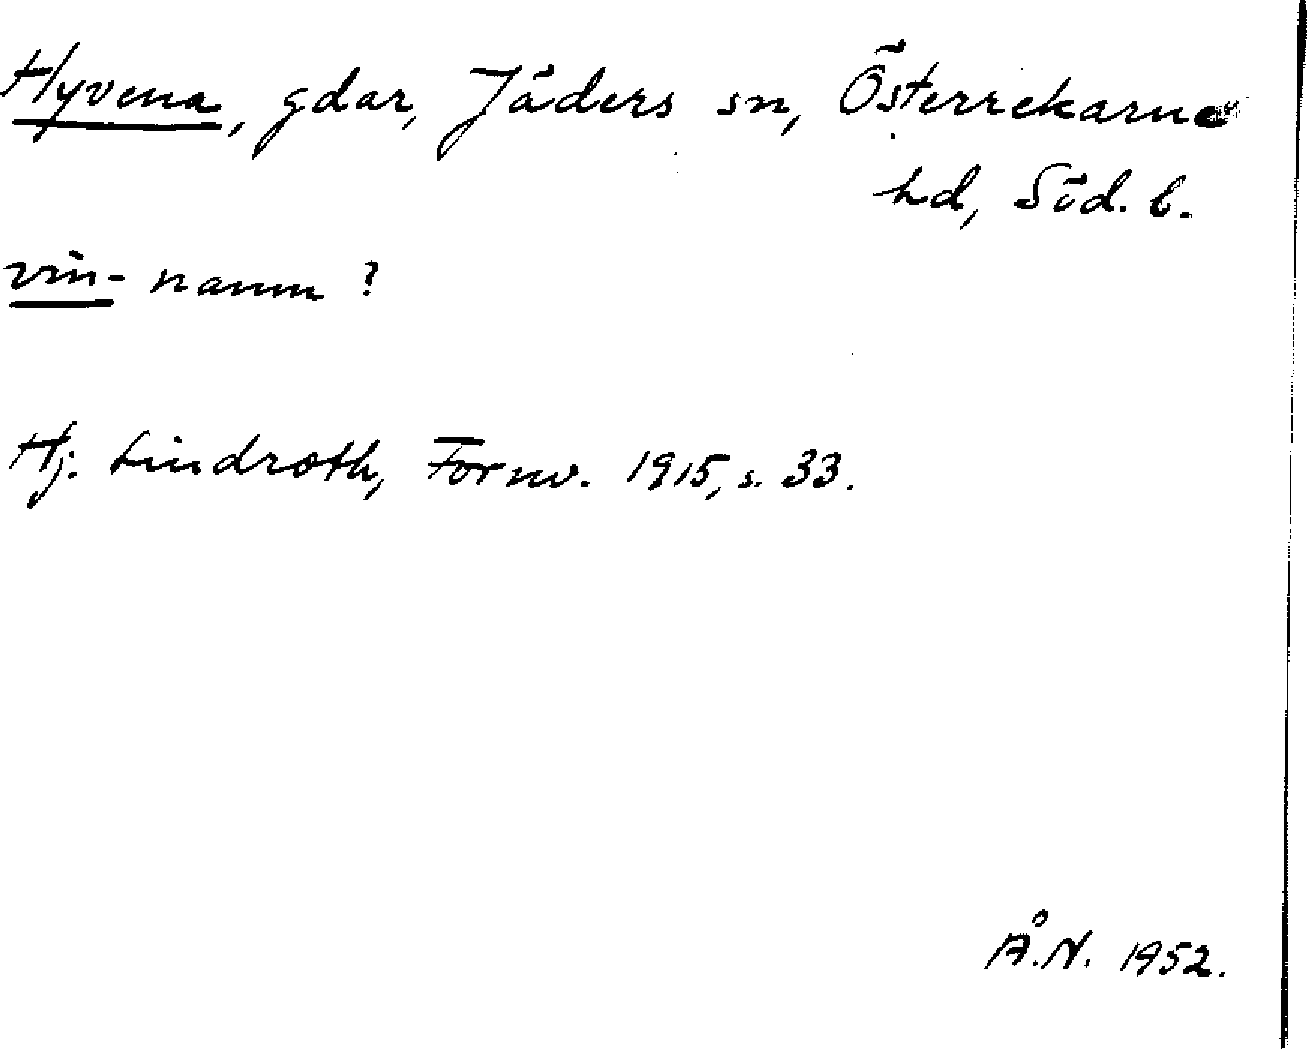 Hyvena, gdar, Jäders sn, Österrekarne
hd, Söd. l.
vin- namn?
Hj. Lindroth, Fornv. 1915, s. 33.
Å.N. 1952.